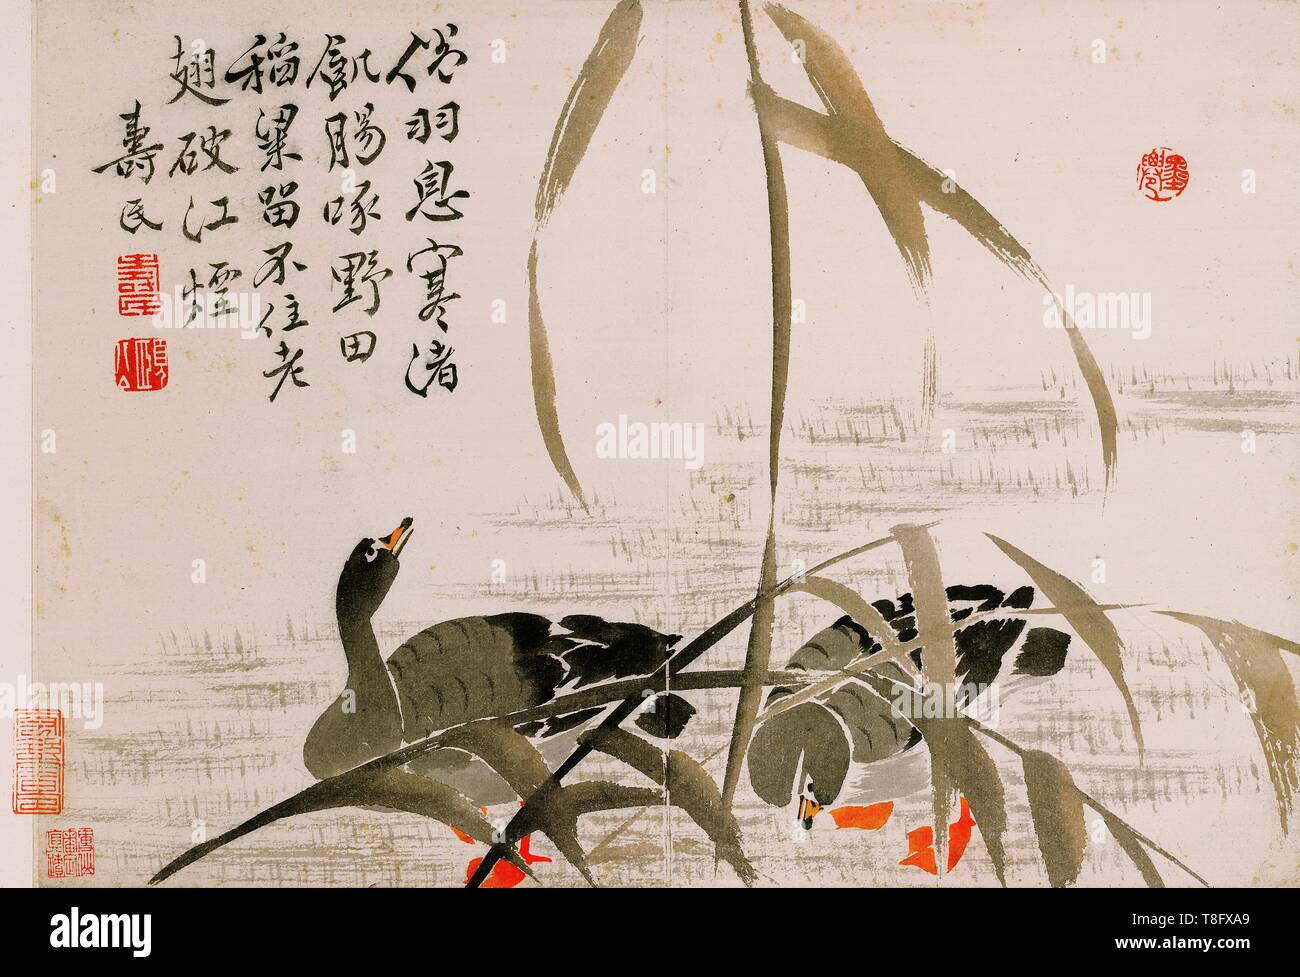 倦羽息寒渚
飢腸啄野田
稻粱留不住老
翅破江煙
壽民
壽民
頤公
alamy
Image ID: T8FXA9
www.alamy.com